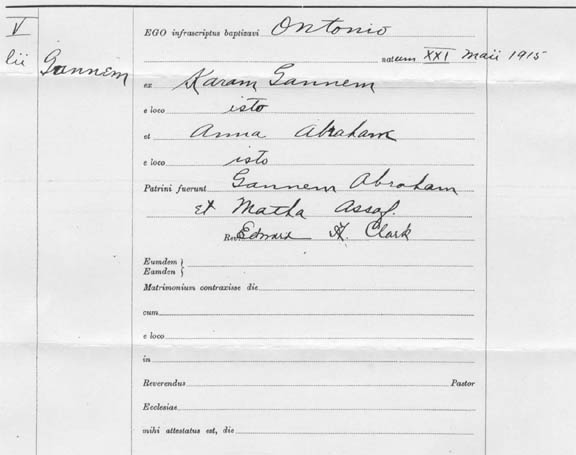 V
lii Gannem
EGO infrascriptus baptizavi Ontonio
natum XXI Maii 1915
ex Karam Gannem
e loco isto
et Anna Abraham
e loco isto
Patrini fuerunt Gannem Abraham
et Matha Assaf.
Rev. Edward H. Clark
Eumdem }
Eamden }
Matrimonium contraxisse die
cum
e loco
in
Reverendus Pastor
Ecclesias
mihi attestatus est, die